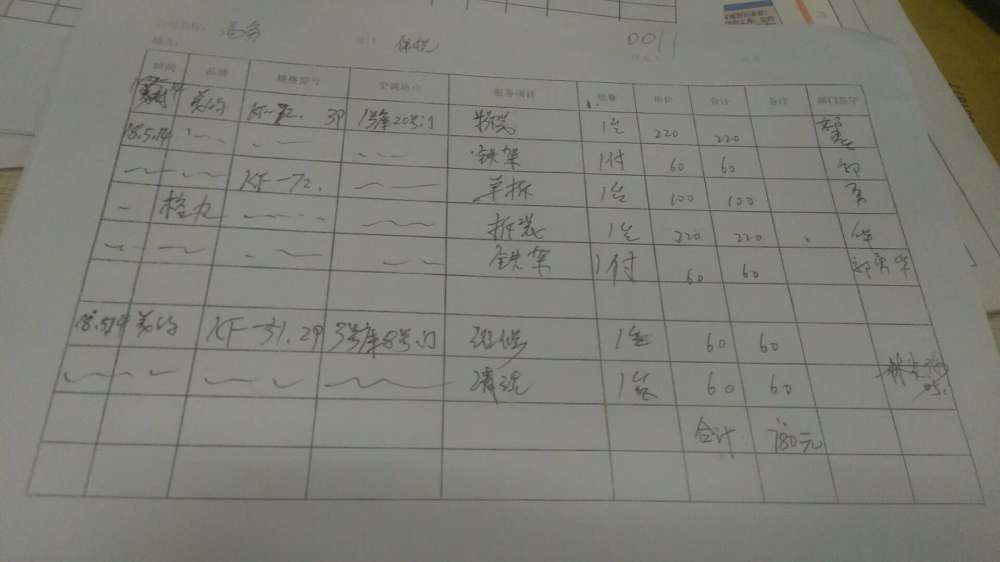 0011
时间 品牌 规格型号 空调地点 服务项目 数量 单价 合计 备注 部门签字
美的 KF-72. 3P 1号库20号门 拆装 1台 220 220
18.5.14 铁架 1付 60 60
KF-72. 单拆 1台 100 100
格力 拆装 1台 220 220
铁架 1付 60 60
美的 KF-31.2P 3号库8号门 维修 1台 60 60
清洗 1台 60 60
合计 780元